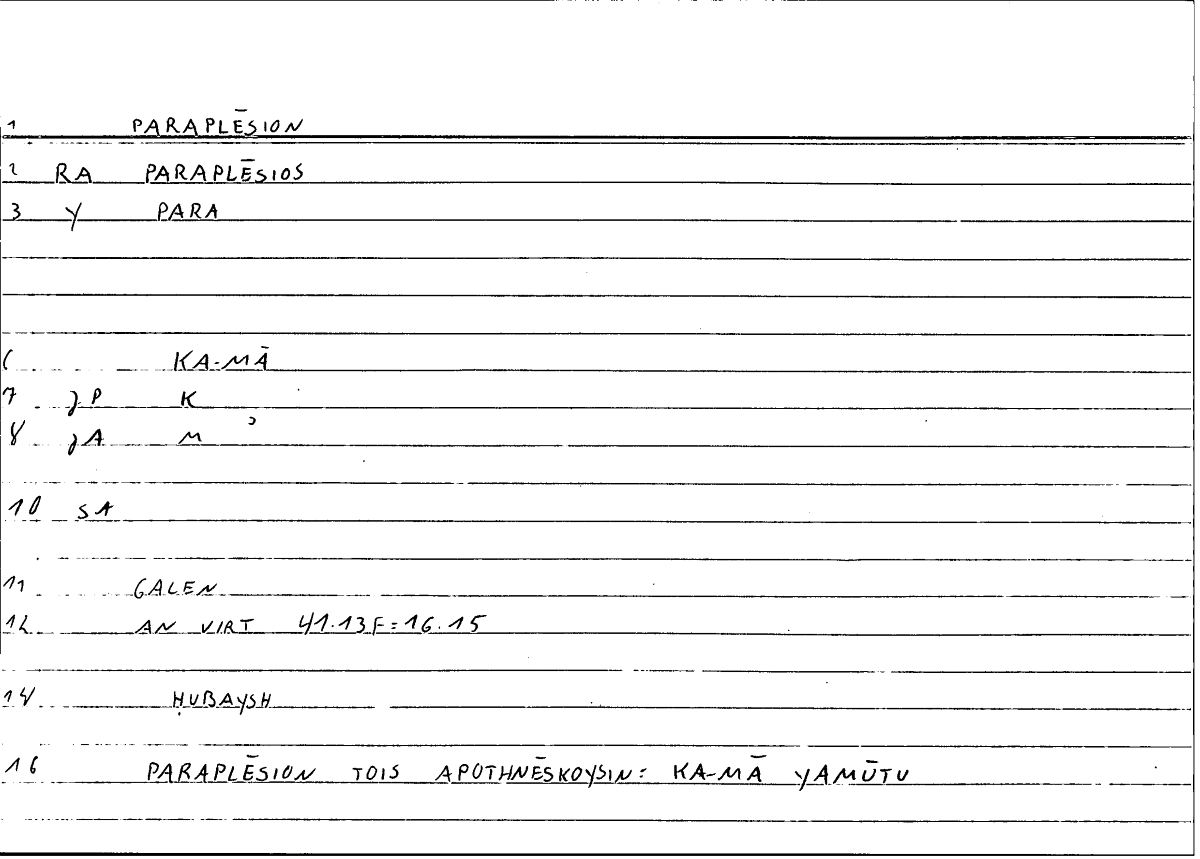 1 PARAPLĒSION
2 RA PARAPLĒSIOS
3 Y PARA
6 KA-MĀ
7 JP K
8 JA M ʾ
10 SA
11 GALEN
12 AN VIRT 41.13F=16.15
14 ḤUBAYSH
16 PARAPLĒSION TOIS APOTHNĒSKOYSIN: KA-MĀ YAMŪTU